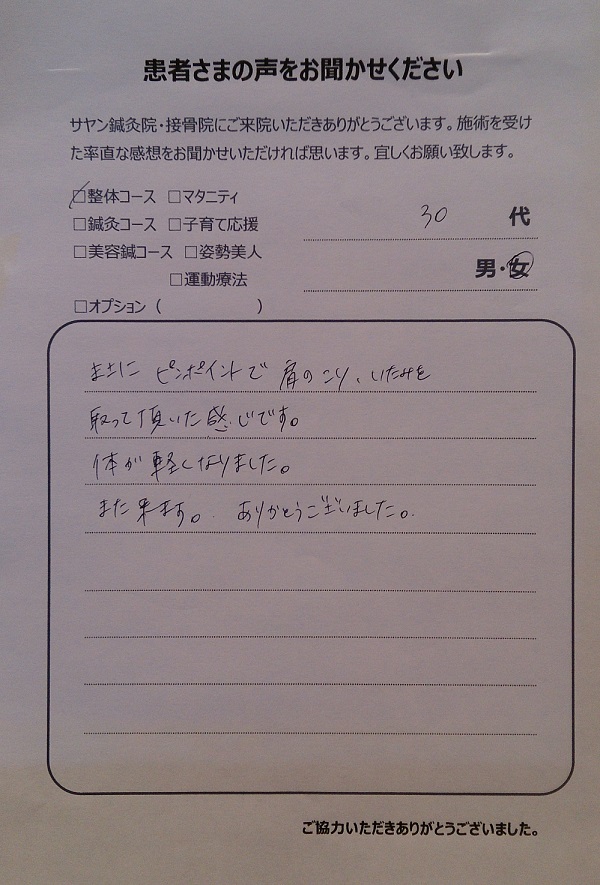 患者さまの声をお聞かせください
サヤン鍼灸院・接骨院にご来院いただきありがとうございます。施術を受け
た率直な感想をお聞かせいただければ思います。宜しくお願い致します。
□整体コース □マタニティ
□鍼灸コース □子育て応援
30 代
□美容鍼コース □姿勢美人
男・女
□運動療法
□オプション（　　　　　　）
まさに ピンポイントで 肩のこり、いたみを
取って頂いた感じです。
体が軽くなりました。
また来ます。ありがとうございました。
ご協力いただきありがとうございました。